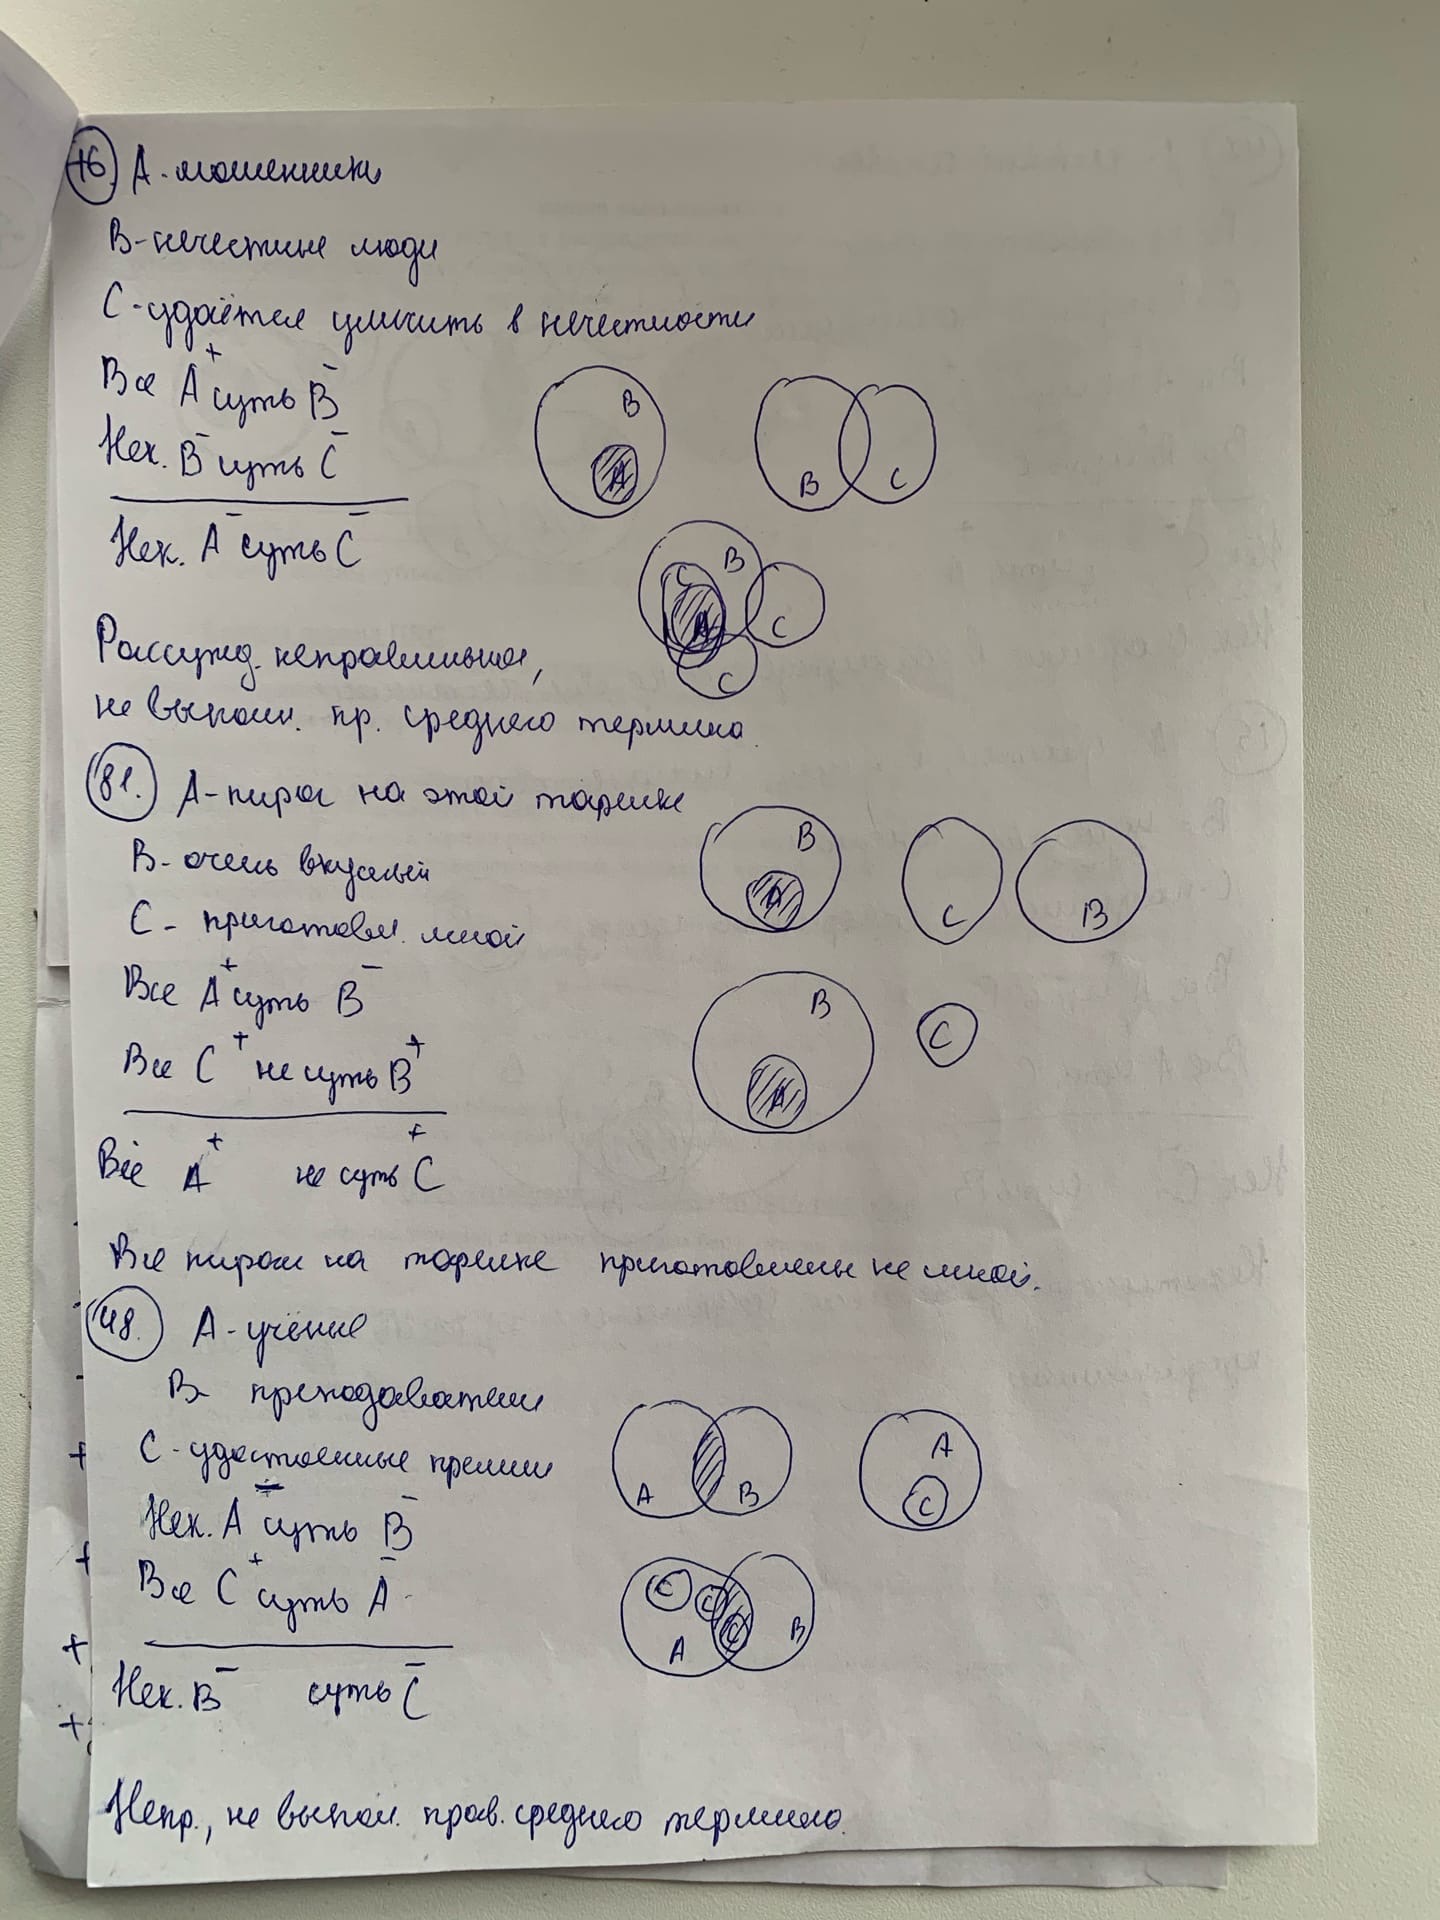 16. А - мошенники
В - нечестные люди
С - удаётся уличить в нечестности
Все А⁺ суть В⁻
Нек. В⁻ суть С⁻
Нек. А⁻ суть С⁻
В
А
В
С
В
С
А
С
С
Рассужд. неправильное,
не выполн. пр. среднего термина.
81. А - пирог на этой тарелке
В - очень вкусный
С - приготовл. мной
Все А⁺ суть В⁻
Все С⁺ не суть В⁺
Все А⁺ не суть С⁺
В
А
С
В
В
А
С
Все пироги на тарелке приготовлены не мной.
48. А - учёные
В - преподаватели
С - удостоенные премии
Нек. А⁻ суть В⁻
Все С⁺ суть А⁻
Нек. В⁻ суть С⁻
А
В
А
С
С
С
С
А
В
Непр., не выпол. прав. среднего термина.